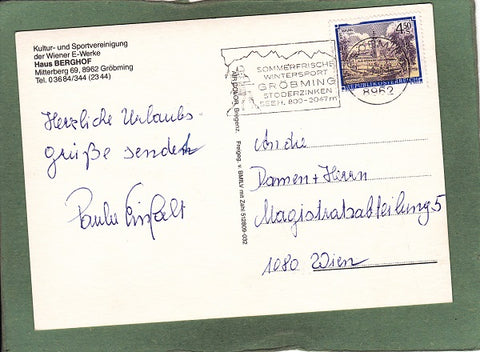 Kultur- und Sportvereinigung
der Wiener E-Werke
Haus BERGHOF
Mitterberg 69, 8962 Gröbming
Tel. 03684/344 (23 44)
SOMMERFRISCHE
WINTERSPORT
GRÖBMING
STODERZINKEN
SEEH. 800-2047m
4.50
REPUBLIK ÖSTERREICH
8962
Herzliche Urlaubs-
grüße sendet
Paula
An die
Damen + Herrn
Magistratsabteilung 5
1080 Wien
Bregenz. Freigeg. v. BMfLV mit Zahl 512809-002